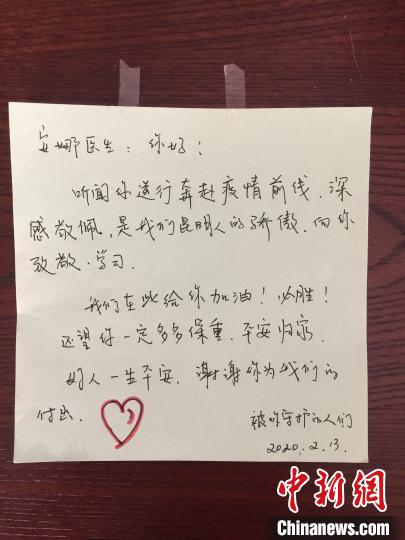 安娜医生：你好！
听闻你逆行奔赴疫情前线，深
感敬佩，是我们昆明人的骄傲，向你
致敬、学习。
我们在此给你加油！必胜！
还望你一定多多保重，平安归家。
好人一生平安，谢谢你为我们的
付出。
被你守护的人们
2020.2.13.
中新网
Chinanews.com